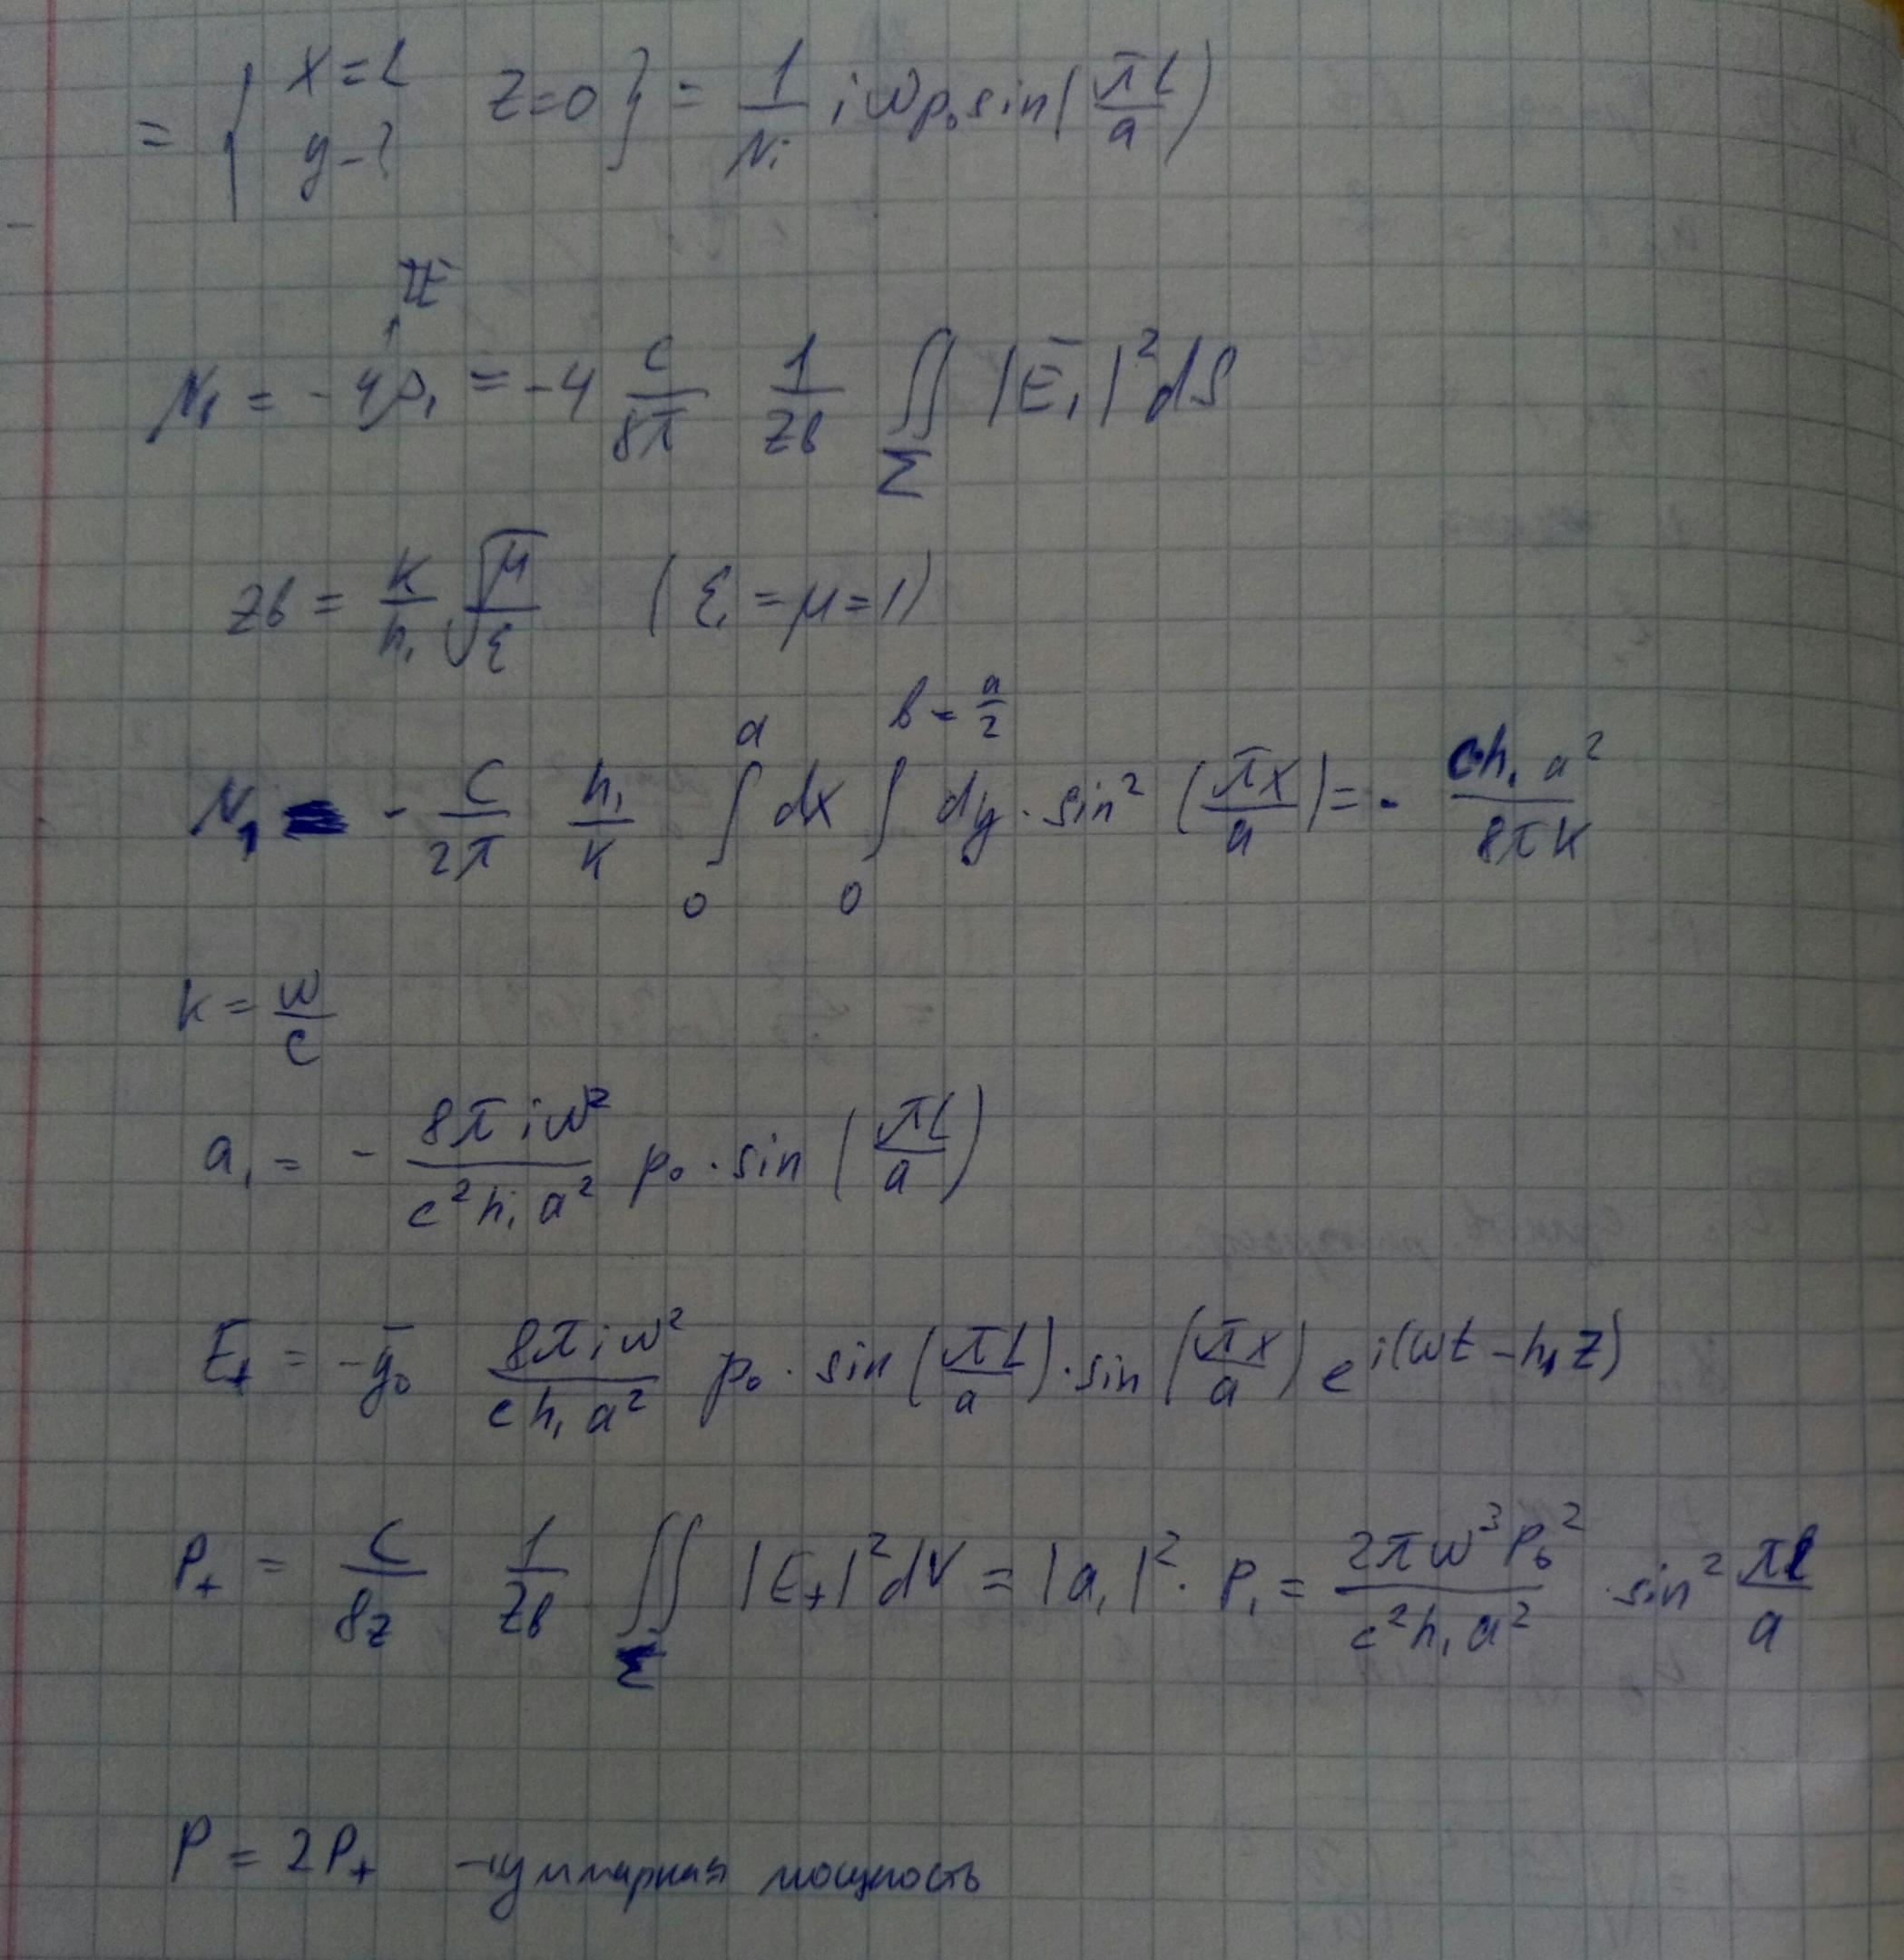 = { x = L y - ? z = 0 } = 1/N₁ i ω p₀ sin(πL/a)
TE
N₁ = - 4P₁ = -4 c/8π 1/Zв ∬_Σ |Ē₁|² dS
Zв = k/h₁ √(μ/ε) (ε = μ = 1)
N₁ = - c/2π h₁/k ∫₀^a dx ∫₀^{b = a/2} dy · sin² (πx/a) = - ch₁a²/8πk
k = ω/c
a₁ = - 8πiω²/c²h₁a² p₀ · sin (πL/a)
E₊ = - ȳ₀ 8πiω²/ch₁a² p₀ · sin (πL/a) · sin (πx/a) e^{i(ωt - h₁z)}
P₊ = c/8z 1/Zв ∬_Σ |E₊|² dV = |a₁|² · P₁ = 2πω³p₀²/c²h₁a² · sin² πl/a
P = 2P₊ - суммарная мощность